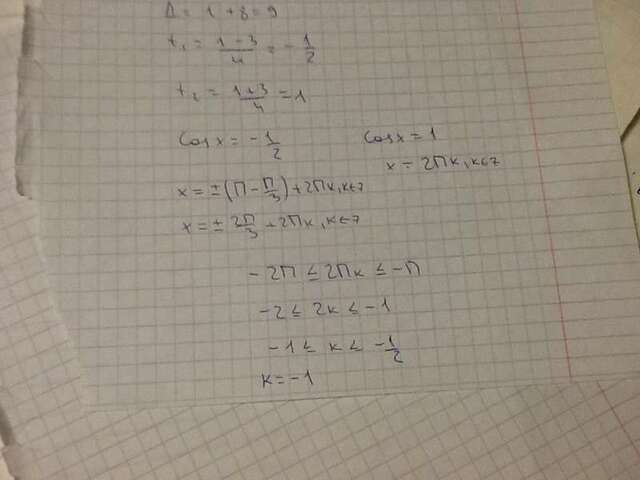 D = 1 + 8 = 9
t₁ = (1 - 3)/4 = -1/2
t₂ = (1 + 3)/4 = 1
Cosx = -1/2 Cosx = 1
x = 2Пk, k∈z
x = ±(П - П/3) + 2Пk, k∈z
x = ± 2П/3 + 2Пk, k∈z
-2П ≤ 2Пk ≤ -П
-2 ≤ 2k ≤ -1
-1 ≤ k ≤ -1/2
k = -1